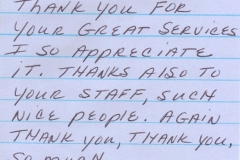 THANK YOU FOR
YOUR GREAT SERVICES
I SO APPRECIATE
IT. THANKS ALSO TO
YOUR STAFF, SUCH
NICE PEOPLE. AGAIN
THANK YOU, THANK YOU,
SO MUCH